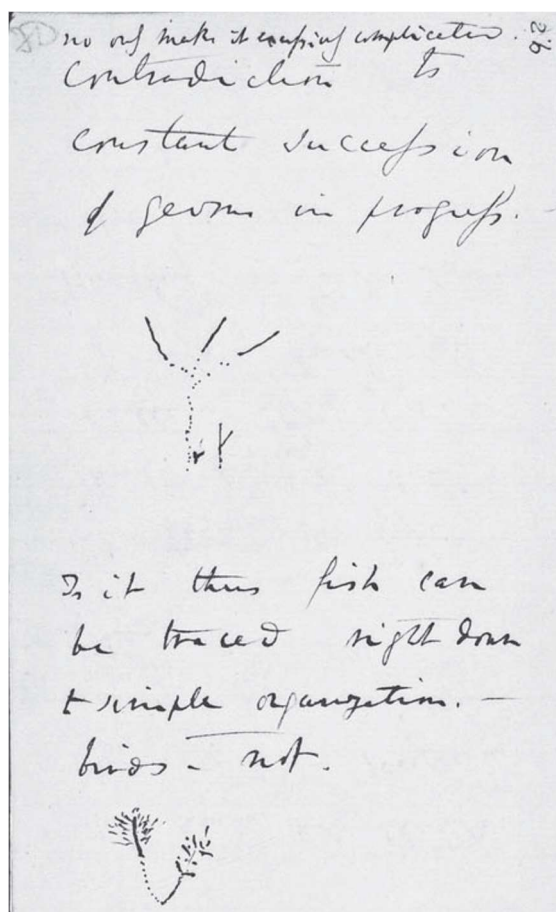 no only makes it excessively complicated.
26
Contradiction to
constant succession
of germs in progress.
Is it thus fish can
be traced right down
to simple organization. —
birds — not.